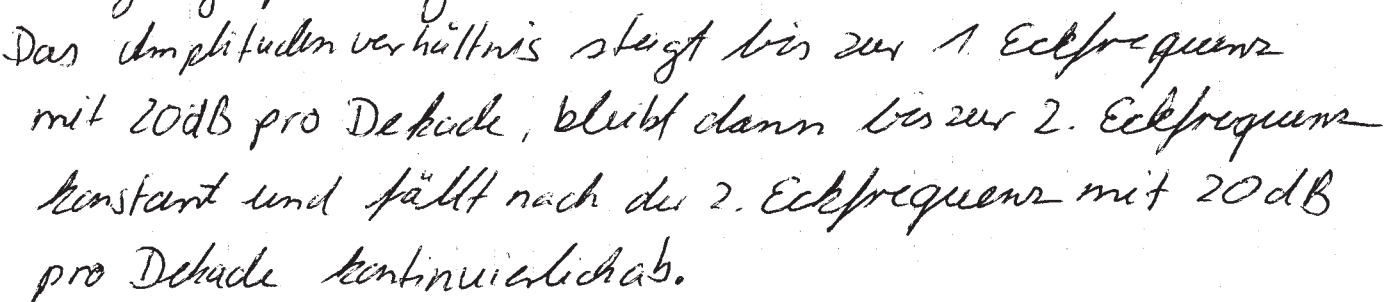 Das Amplitudenverhältnis steigt bis zur 1. Eckfrequenz
mit 20dB pro Dekade, bleibt dann bis zur 2. Eckfrequenz
konstant und fällt nach der 2. Eckfrequenz mit 20dB
pro Dekade kontinuierlich ab.